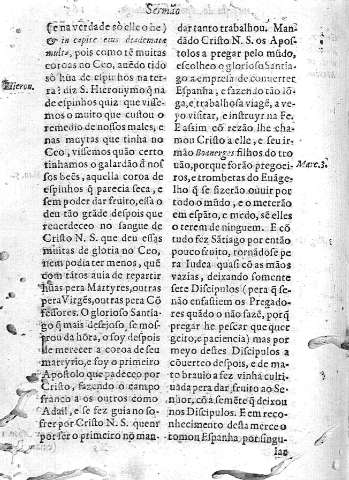 Sermão
(e na verdade sò elle o he)
& in capite eius diademata
multa, pois como tẽ muitas
coroas no Ceo, auẽdo tido
sò hũa de espinhos na ter-
ra? diz S. Hieronymo q̃ na
de espinhos quiz que visse-
mos o muito que custou o
remedio de nossos males, e
nas muytas que tinha no
Ceo, vissemos quão certo
tinhamos o galardão d nos
sos bẽs, aquella coroa de
espinhos q̃ parecia seca, e
sem poder dar fruito, essa o
deu tão grãde despois que
reuerdeceo no sangue de
Cristo N. S. que deu essas
muitas de gloria no Ceo,
nem podia ter menos, quẽ
com tãtos auia de repartir
hũas pera Martyres, outras
pera Virgẽs, outras pera Cõ
fessores. O glorioso Santia-
go q̃ mais desejoso, se mos-
trou da hõra, o foy despois
de merecer a coroa de seu
martyrio, e foy o primeiro
Apostolo que padeceo por
Cristo, fazendo o campo
franco a os outros como
Adail, e se fez guia no so-
frer por Cristo N. S. quem
por ser o primeiro no man-
Hieron.
dar tanto trabalhou. Man-
dãdo Cristo N. S. os Apos-
tolos a pregar pelo mũdo,
escolheo o glorioso Santia-
go a empresa de conuerter
Espanha, e fazendo tão lõ-
ga, e trabalhosa viagẽ, a ve-
yo visitar, e instruyr na Fè.
E assim cõ rezão lhe cha-
mou Cristo a elle, e seu ir-
mão Boanerges filhos do tro
uão, porque forão pregoei-
ros, e trombetas do Euãge-
lho q̃ se fizerão ouuir por
todo o mũdo, e o meterão
em espãto, e medo, sẽ elles
o terem de ninguem. E cõ
tudo fez Sãtiago por então
pouco fruito, tornãdose pe
ra Iudea quasi cõ as mãos
vazias, deixando somente
sete Discipulos (pera q̃ se
não enfastiem os Pregado-
res quãdo o não fazẽ, porq̃
pregar he pescar que quer
geito, e paciencia) mas por
meyo destes Discipulos a
cõuerteo despois, e de ma-
to brauio a fez vinha culti-
uada pera dar fruito ao Se-
nhor, cõ a semẽte q̃ deixou
nos Discipulos. E em reco-
nhecimento desta merce o
tomou Espanha por singu-
lar
Marc. 3.